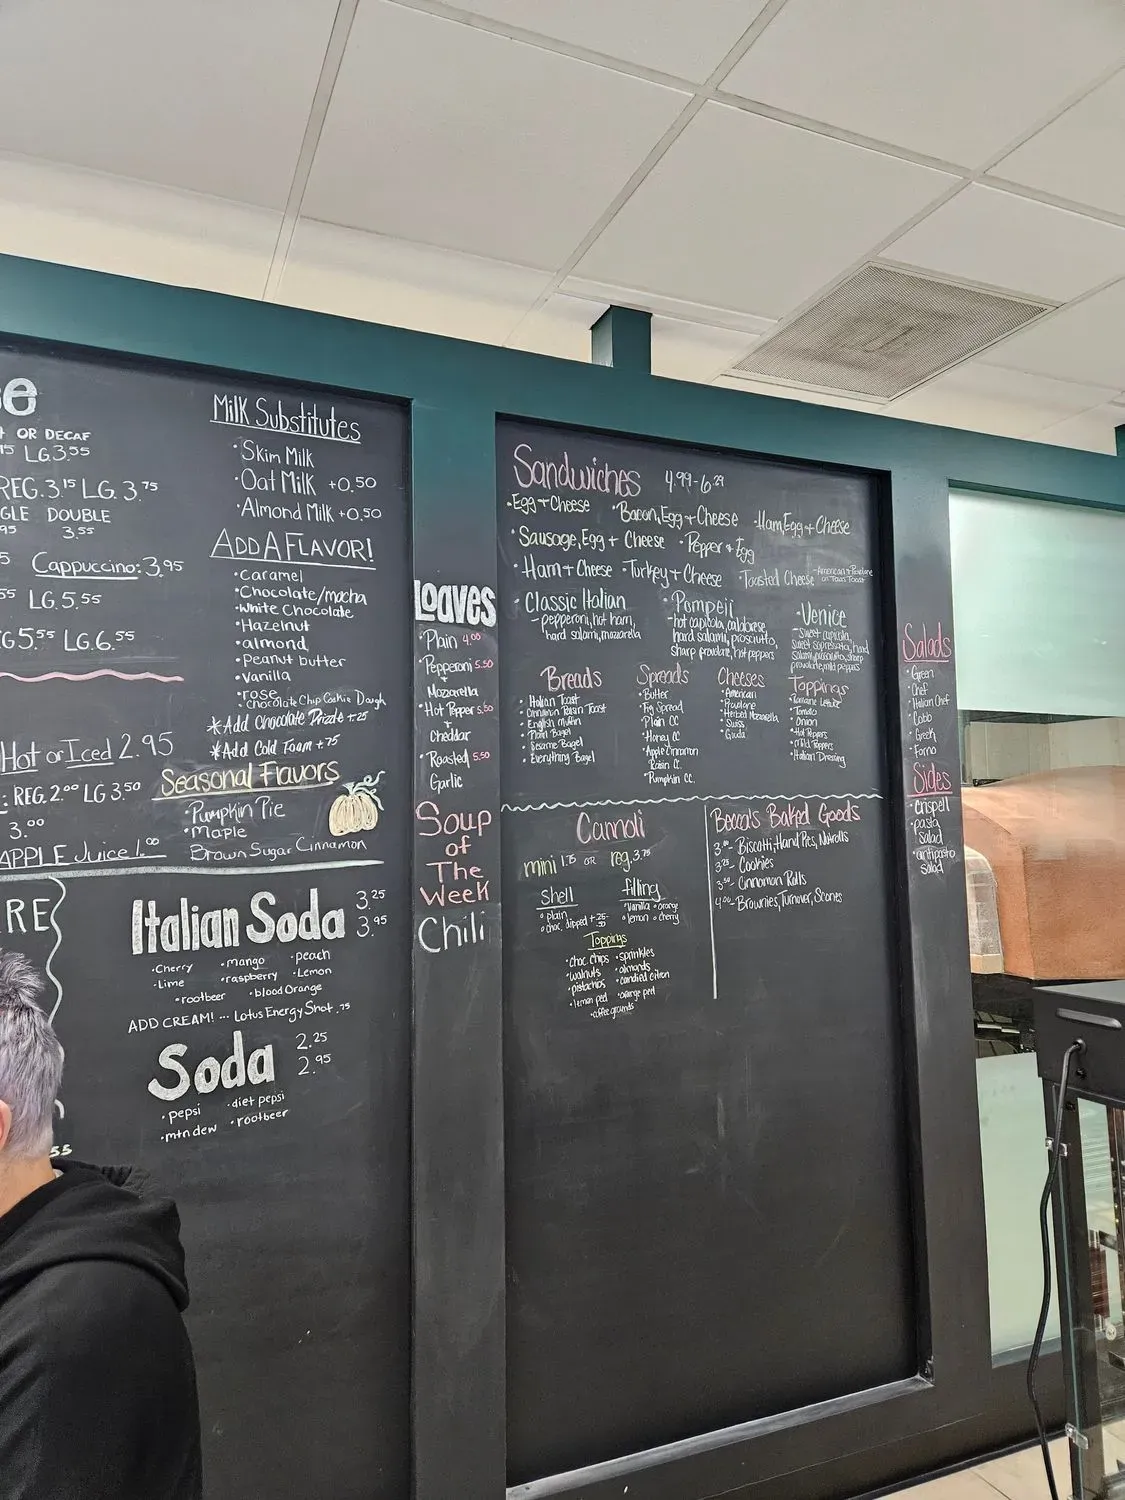 OR DECAF
LG 3.55
REG. 3.15 LG. 3.75
DOUBLE
3.55
Cappuccino: 3.95
LG. 5.55
5.55 LG. 6.55
Hot or Iced 2.95
: REG. 2.00 LG 3.50
3.00
APPLE Juice 1.00
Milk Substitutes
• Skim Milk
• Oat Milk +0.50
• Almond Milk +0.50
ADD A FLAVOR!
• Caramel
• Chocolate/mocha
• White Chocolate
• Hazelnut
• almond
• Peanut butter
• Vanilla
• rose
• Chocolate Chip Cookie Dough
* Add Chocolate Drizzle +.25
* Add Cold Foam +.75
Seasonal Flavors
• Pumpkin Pie
• Maple
Brown Sugar Cinnamon
Italian Soda 3.25
3.95
• Cherry • mango • peach
• Lime • raspberry • Lemon
• rootbeer • blood Orange
ADD CREAM! ... Lotus Energy Shot .75
Soda 2.25
2.95
• pepsi • diet pepsi
• mtn dew • rootbeer
Loaves
• Plain 4.00
• Pepperoni 5.50
+
Mozzarella
• Hot Pepper 5.50
+
Cheddar
• Roasted 5.50
Garlic
Soup
of
The
Week
Chili
Sandwiches 4.99-6.29
• Egg + Cheese • Bacon, Egg + Cheese • Ham, Egg + Cheese
• Sausage, Egg + Cheese • Pepper + Egg
• Ham + Cheese • Turkey + Cheese • Toasted Cheese
• Classic Italian
- pepperoni, hot ham,
hard salami, mozzarella
• Pompeii
- hot capicola, calabrese
hard salami, prosciutto,
sharp provolone, hot peppers
• Venice
- sweet capicola,
sweet sopressata, hard
salami, prosciutto, sharp
provolone, mild peppers
Breads
• Italian Toast
• Cinnamon Raisin Toast
• English Muffin
• Plain Bagel
• Sesame Bagel
• Everything Bagel
Spreads
• Butter
• Fig Spread
• Plain CC
• Honey CC
• Apple Cinnamon
Raisin CC.
• Pumpkin CC.
Cheeses
• American
• Provolone
• Herbed Mozzarella
• Swiss
• Gouda
Toppings
• Romaine Lettuce
• Tomato
• Onion
• Hot Peppers
• Mild Peppers
• Italian Dressing
Cannoli
mini 1.75 OR reg. 3.75
Shell
• plain
• choc. dipped +.25-.50
filling
• Vanilla • orange
• lemon • cherry
Toppings
• choc chips • sprinkles
• walnuts • almonds
• pistachios • candied citron
• lemon peel • orange peel
• coffee grounds
Becca's Baked Goods
- Biscotti, Hand Pies, Nutrolls
3.25 - Cookies
3.50 - Cinnamon Rolls
4.00 - Brownies, Turnover, Scones
Salads
• Green
• Chef
• Italian Chef
• Cobb
• Greek
• Forno
Sides
• Crispell
• pasta
salad
• antipasto
salad